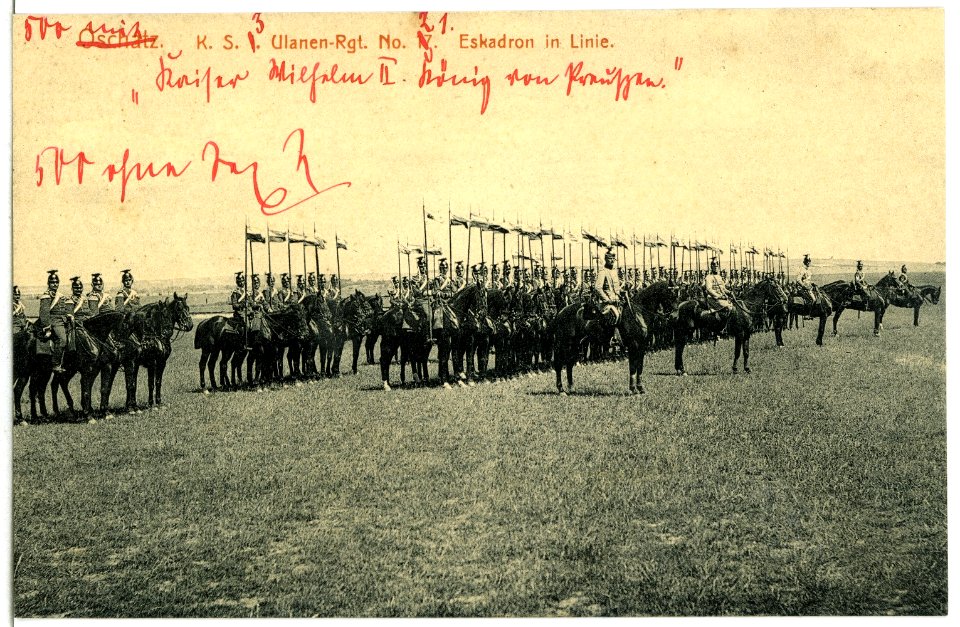 500 mit
Oschatz. K. S. 1. 3 Ulanen-Rgt. No. 17. 21. Eskadron in Linie.
„Kaiser Wilhelm II. König von Preußen."
500 ohne